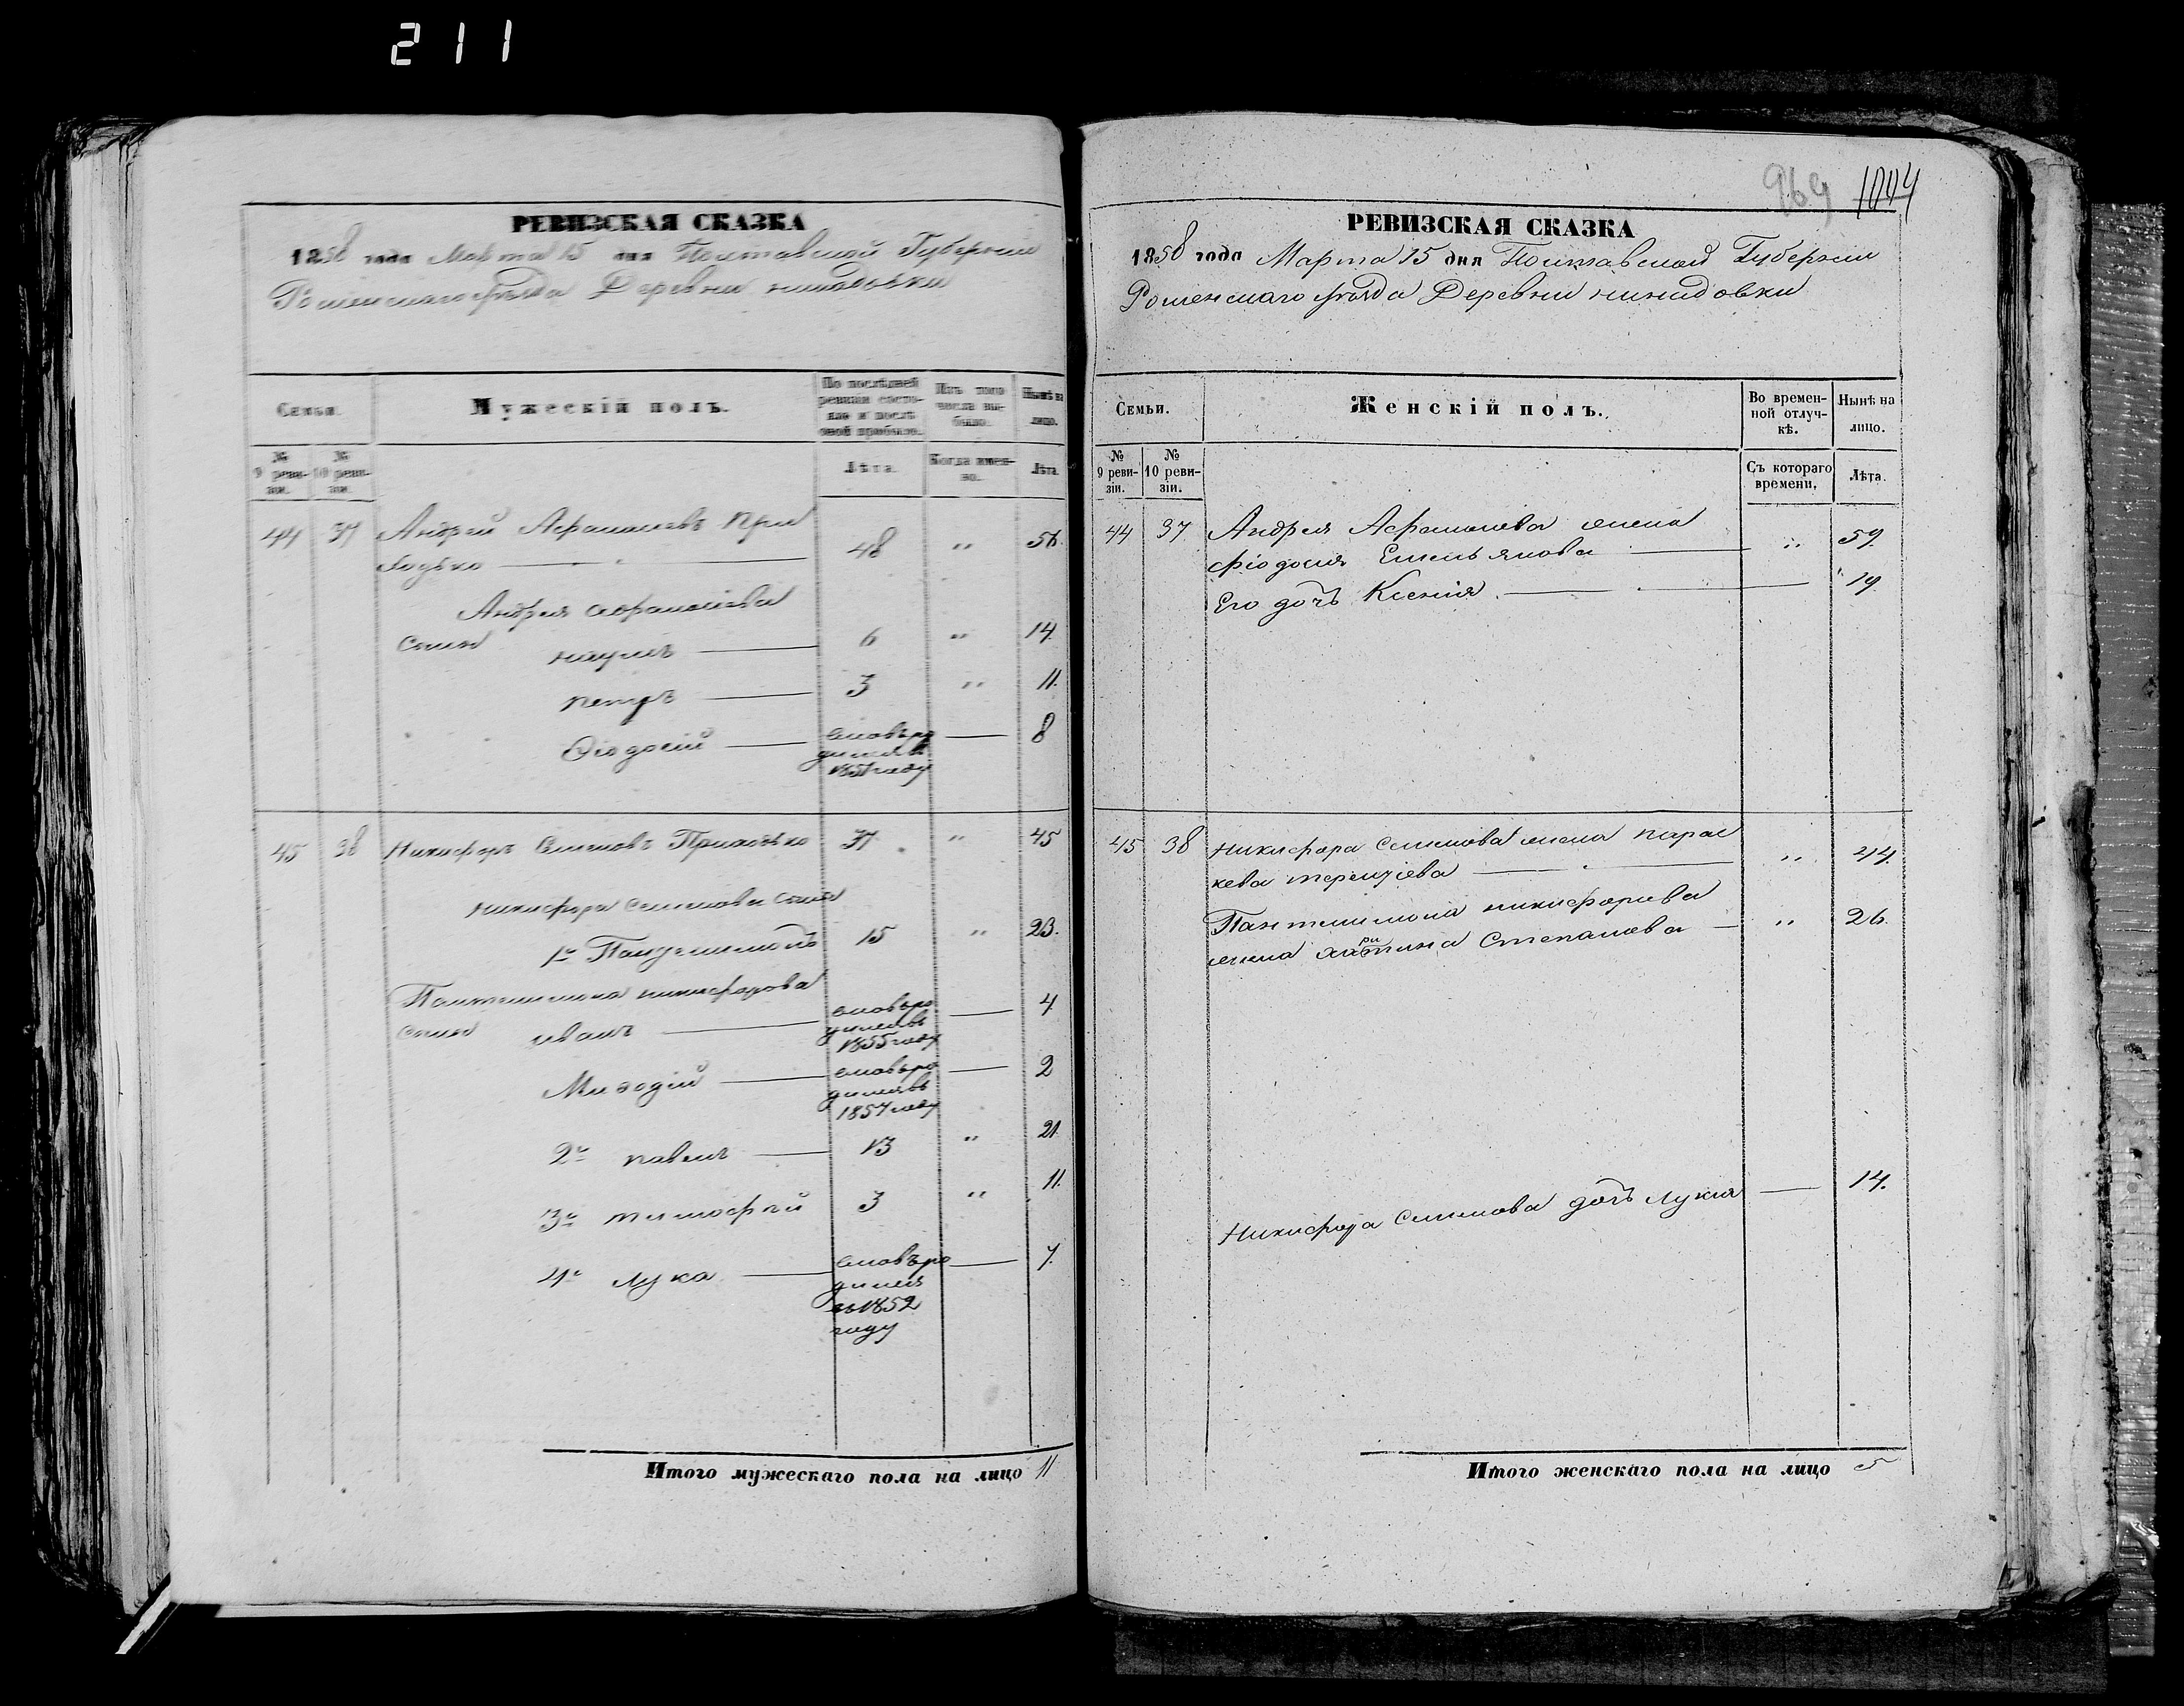 211
РЕВИЗСКАЯ СКАЗКА
1858 года Марта 15 дня Полтавской Губернии
Роменскаго уѣзда Деревни
Семьи.
Мужескій полъ.
По послѣдней ревизіи состояло и послѣ оной прибыло.
Изъ того числа выбыло.
Нынѣ на лицо.
№ 9 ревизіи.
№ 10 ревизіи.
Лѣта.
Когда именно.
Лѣта
44 37 Андрей Афанасіевъ При
ходько 48 " 56.
Андрея Афанасіева
сыны наумъ 6 " 14.
петръ 3 " 11.
Ѳіодосій вновь ро 8
дился въ
1851 году
45 38 Никифоръ Семеновъ Приходько 37 " 45
Никифора Семенова сыны
1й Пантелимонъ 15 " 23.
Пантелимона никифорова
сыны иванъ вновь ро 4
дился въ
1855 году
Миѳодій вновь ро 2
дился въ
1857 году
2й павелъ 13 " 21.
3й тимофей 3 " 11.
4й лука вновь ро 7.
дился
въ 1852
году
Итого мужескаго пола на лицо 11
969 1004
РЕВИЗСКАЯ СКАЗКА
1858 года Марта 15 дня Полтавской Губернии
Роменскаго уѣзда Деревни
Семьи.
Женскій полъ.
Во временной отлучкѣ.
Нынѣ на лицо.
№ 9 ревизіи.
№ 10 ревизіи.
Съ котораго времени.
Лѣта.
44 37 Андрея Афанасіева жена
фіодосія Емельянова " 59.
Его дочь Ксенія " 19
45 38 Никифора Семенова жена парас
кева терентіева " 44.
Пантелимона никифорова
жена Степанова " 26.
Никифора Семенова дочь лукія 14.
Итого женскаго пола на лицо 5